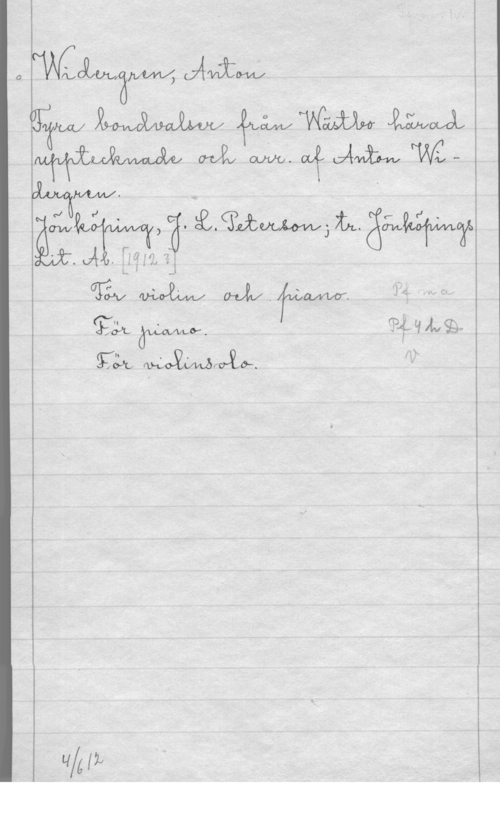 Widergren, Anton
Fyra bondvalser från Wästbo härad
upptecknade och arr. af Anton Wi-
dergren.
Jönköping, J. L. Peterson; tr. Jönköpings
Lit. Ab. [1912
För violin och piano. Pf
För piano. Pf 4 h D.
För violinsolo. V
4/6 12